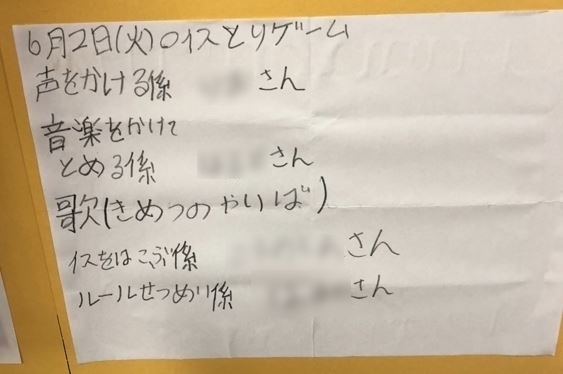 6月2日(火)○イスとりゲーム
声をかける係 さん
音楽をかけて
とめる係 さん
歌(きめつのやいば)
イスをはこぶ係 さん
ルールせつめい係 さん